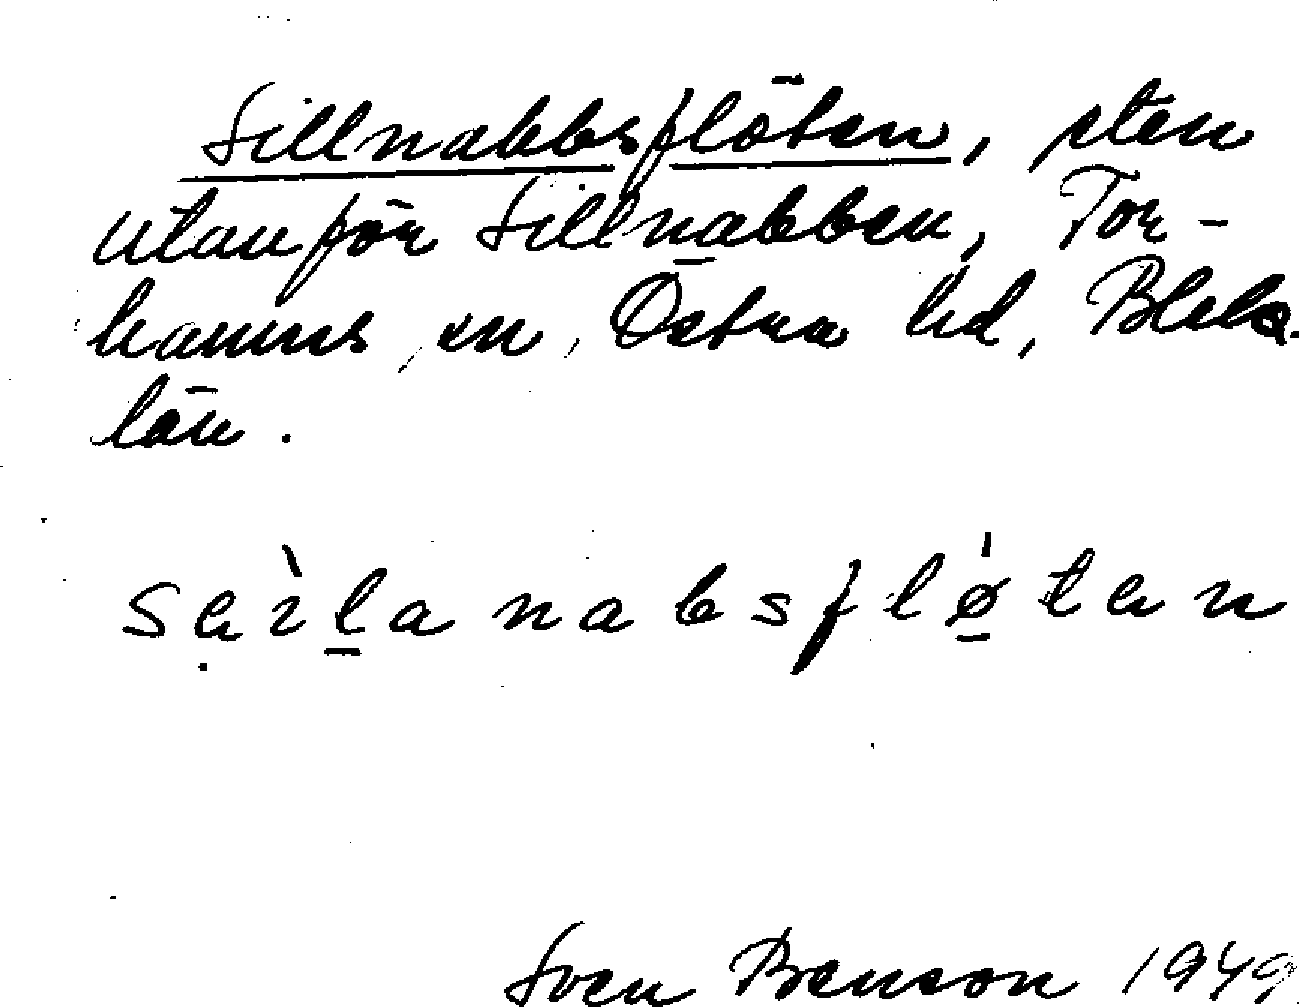 Sillnabbsflöten, sten
utanför Sillnabben, Tor-
hamns sn, Östra hd, Blek.
län.
Sven Benson 1949